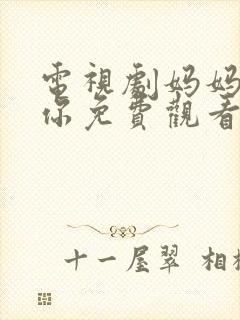 電視劇妈妈
你免費觀看
十一屋翠 相